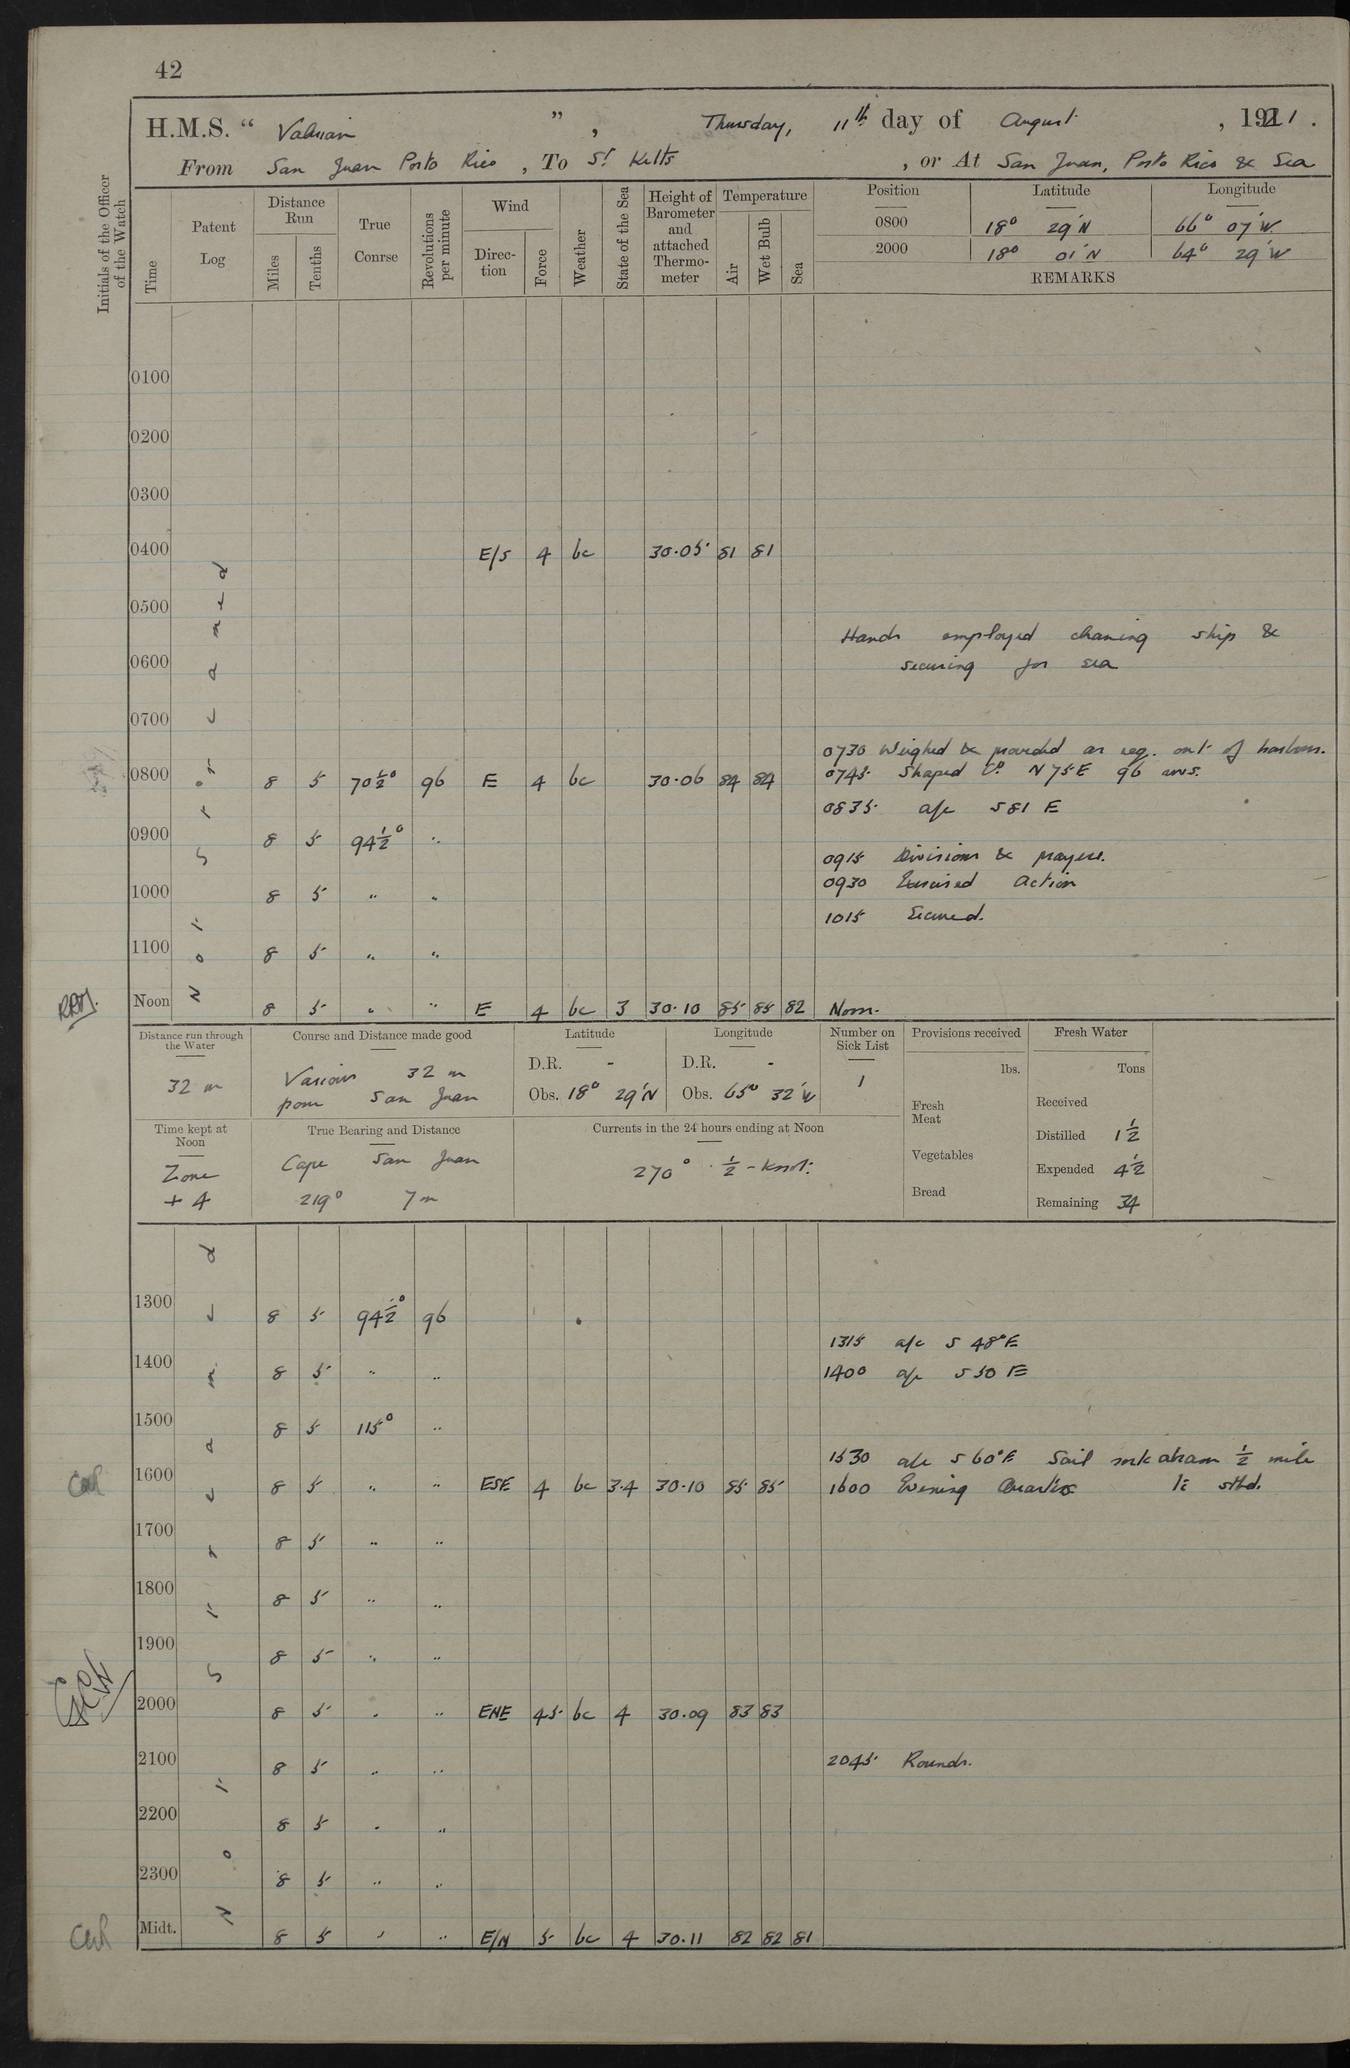 42
H.M.S. " Valerian " , Thursday, 11th day of August , 1921 .
From San Juan Porto Rico , To St Kitts , or At San Juan, Porto Rico & Sea
Initials of the Officer of the Watch
Time Patent Log Distance Run Miles Tenths True Course Revolutions per minute Wind Direction Force Weather State of the Sea Height of Barometer and attached Thermometer Temperature Air Wet Bulb Sea
Position Latitude Longitude
0800 18° 29'N 66° 07'W
2000 18° 01'N 64° 29'W
REMARKS
0100
0200
0300
0400 E/S 4 bc 30.05 81 81
0500
Hands employed cleaning ship &
0600 securing for sea
0700
0730 Weighed & proceeded as req. out of harbour.
0800 8 5 70½° 96 E 4 bc 30.06 84 84 0745 Shaped Co N75E 96 revs.
0835 a/c S81E
0900 8 5 94½° "
0915 Divisions & prayers.
0930 Exercised Action
1000 8 5 " "
1015 Secured.
1100 8 5 " "
Noon 8 5 " " E 4 bc 3 30.10 85 85 82 Noon.
Not Streamed
Distance run through the Water
32 m
Course and Distance made good
Various 32 m
from San Juan
Latitude
D.R. -
Obs. 18° 29'N
Longitude
D.R. -
Obs. 65° 32'W
Number on Sick List
1
Provisions received
lbs.
Fresh Meat
Vegetables
Bread
Fresh Water
Tons
Received
Distilled 1½
Expended 4½
Remaining 34
Time kept at Noon
Zone
+ 4
True Bearing and Distance
Cape San Juan
219° 7 m
Currents in the 24 hours ending at Noon
270° ½ - knot.
1300 8 5 94½° 96
1315 a/c S 48°E
1400 8 5 " " 1400 a/c S 50 E
1500 8 5 115° "
1530 a/c S 60°E Sail rock abeam ½ mile
1600 8 5 " " ESE 4 bc 3.4 30.10 85 85 1600 Evening Quarters to stbd.
1700 8 5 " "
1800 8 5 " "
1900 8 5 " "
2000 8 5 " " ENE 45 bc 4 30.09 83 83
2045 Rounds.
2100 8 5 " "
2200 8 5 " "
2300 8 5 " "
Midt. 8 5 " " E/N 5 bc 4 30.11 82 82 81
Not Streamed